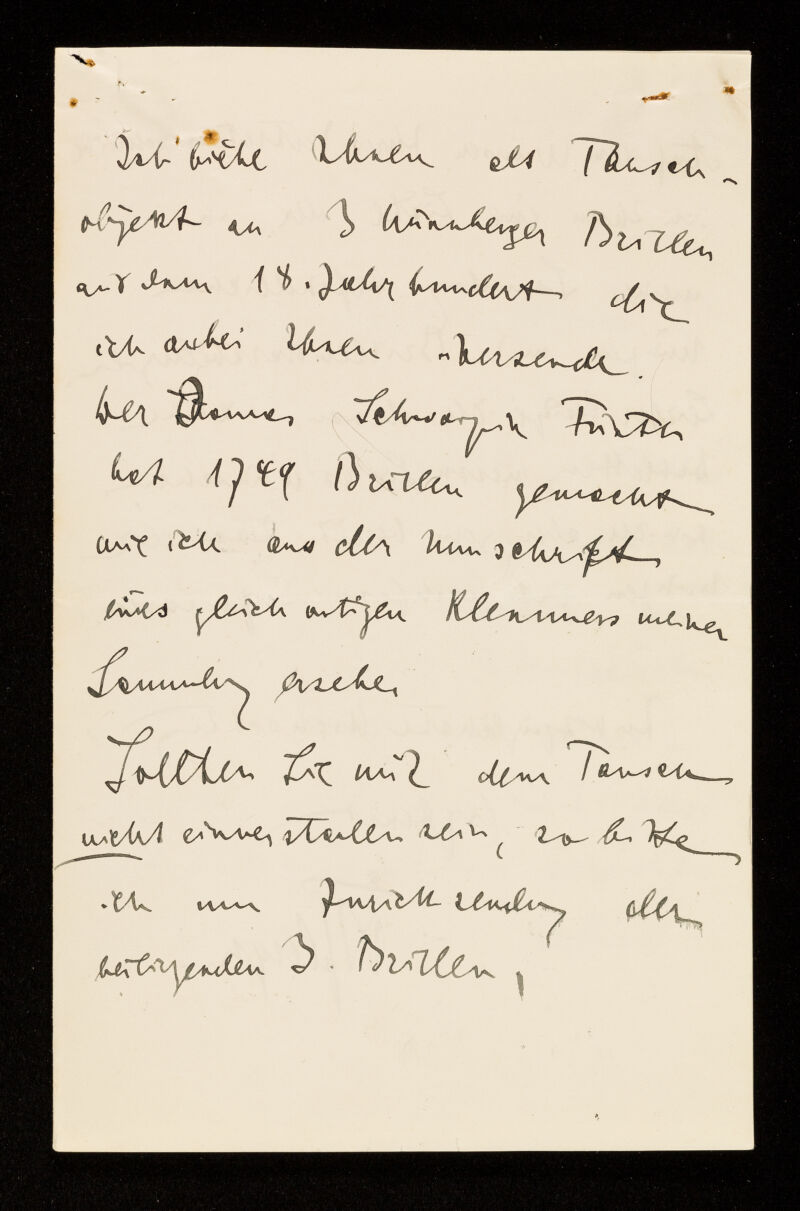 Ich biete Ihnen als Tausch-
objekt an 3 Nürnberger Brillen
aus dem 18. Jahrhundert die
ich anbei Ihnen übersende.
Der Thomas Schwarz in Fürth
hat 1749 Brillen gemacht
wie ich aus der Innschrift
eines gleichartigen Klemmers meiner
Sammlung ersehe.
Sollten Sie mit dem Tausch
nicht einverstanden sein, so bitte
ich um Zurücksendung der
beiliegenden 3. Brillen,